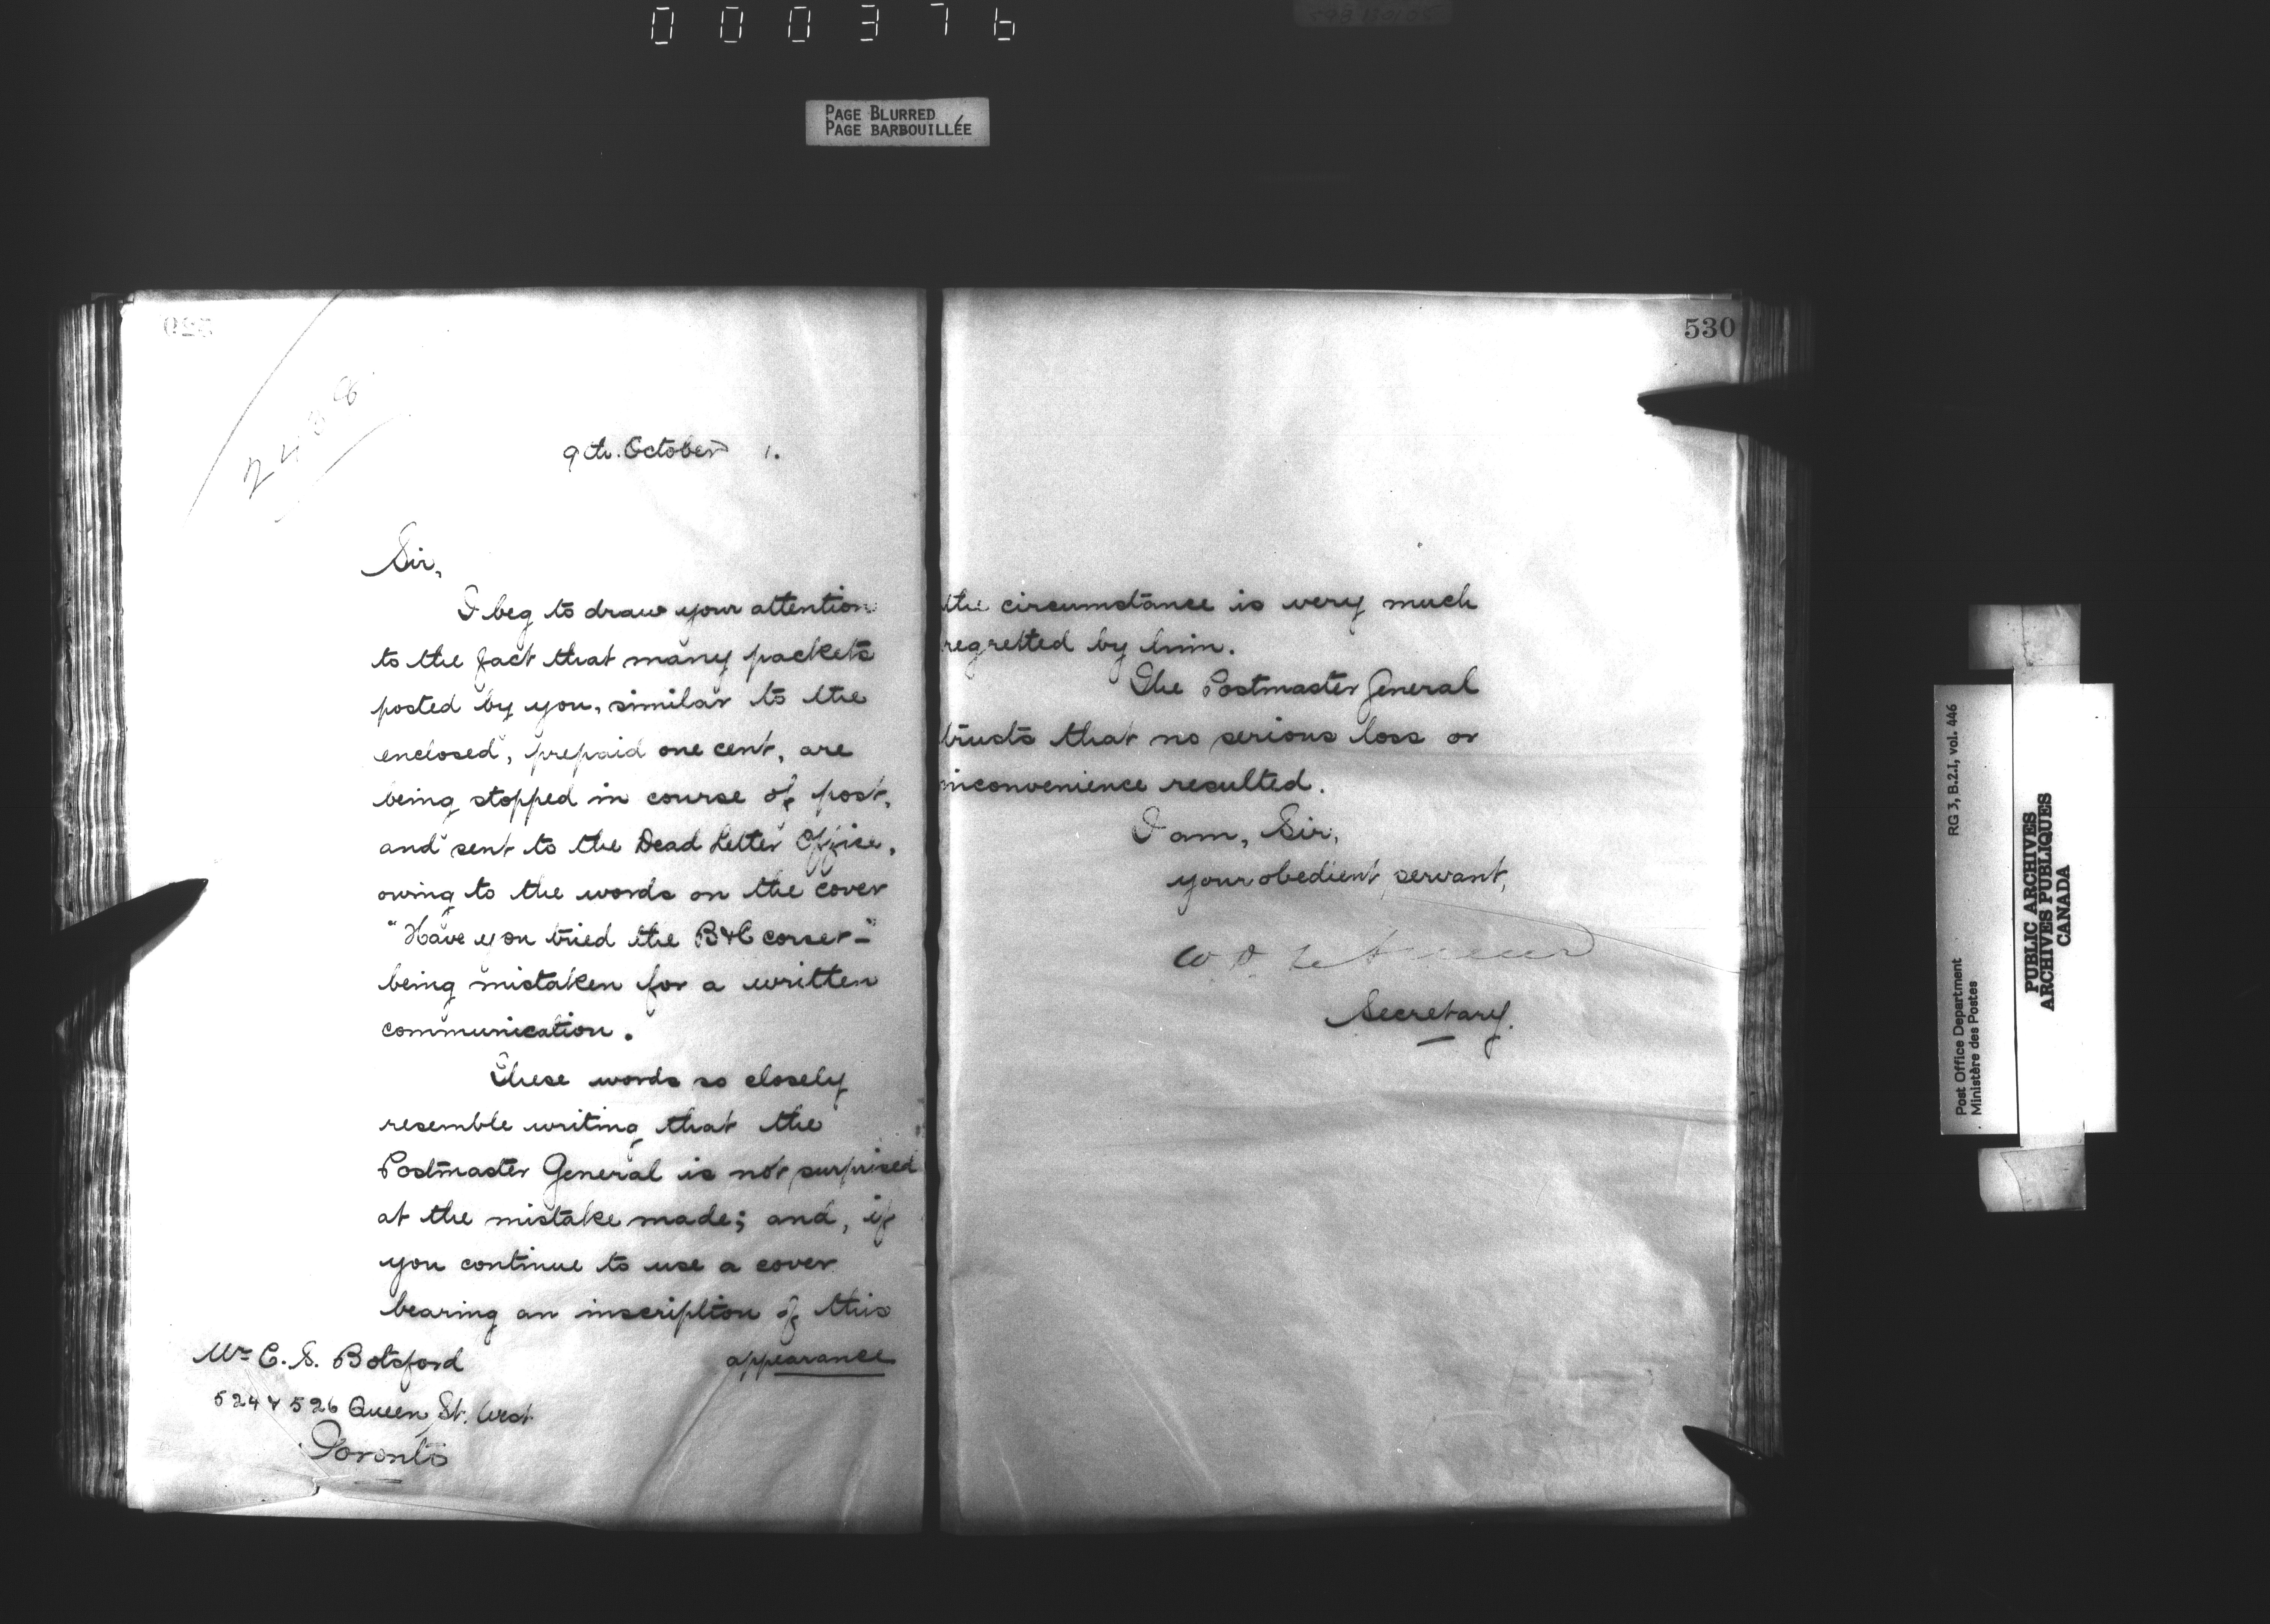 000376
PAGE BLURRED
PAGE BARBOUILLÉE
9th. October 1.
Sir,
I beg to draw your attention
to the fact that many packets
posted by you, similar to the
enclosed, prepaid one cent, are
being stopped in course of post,
and sent to the Dead Letter Office,
owing to the words on the cover
"Have you tried the B&C corset-"
being mistaken for a written
communication.
These words so closely
resemble writing that the
Postmaster General is not surprised
at the mistake made; and, if
you continue to use a cover
bearing an inscription of this
appearance
Mr C. S. Botsford
524 & 526 Queen St. West
Toronto
530
the circumstance is very much
regretted by him.
The Postmaster General
trusts that no serious loss or
inconvenience resulted.
I am, Sir,
your obedient servant,
Secretary.
RG 3, B.2.I, vol. 446
Post Office Department
Ministère des Postes
PUBLIC ARCHIVES
ARCHIVES PUBLIQUES
CANADA